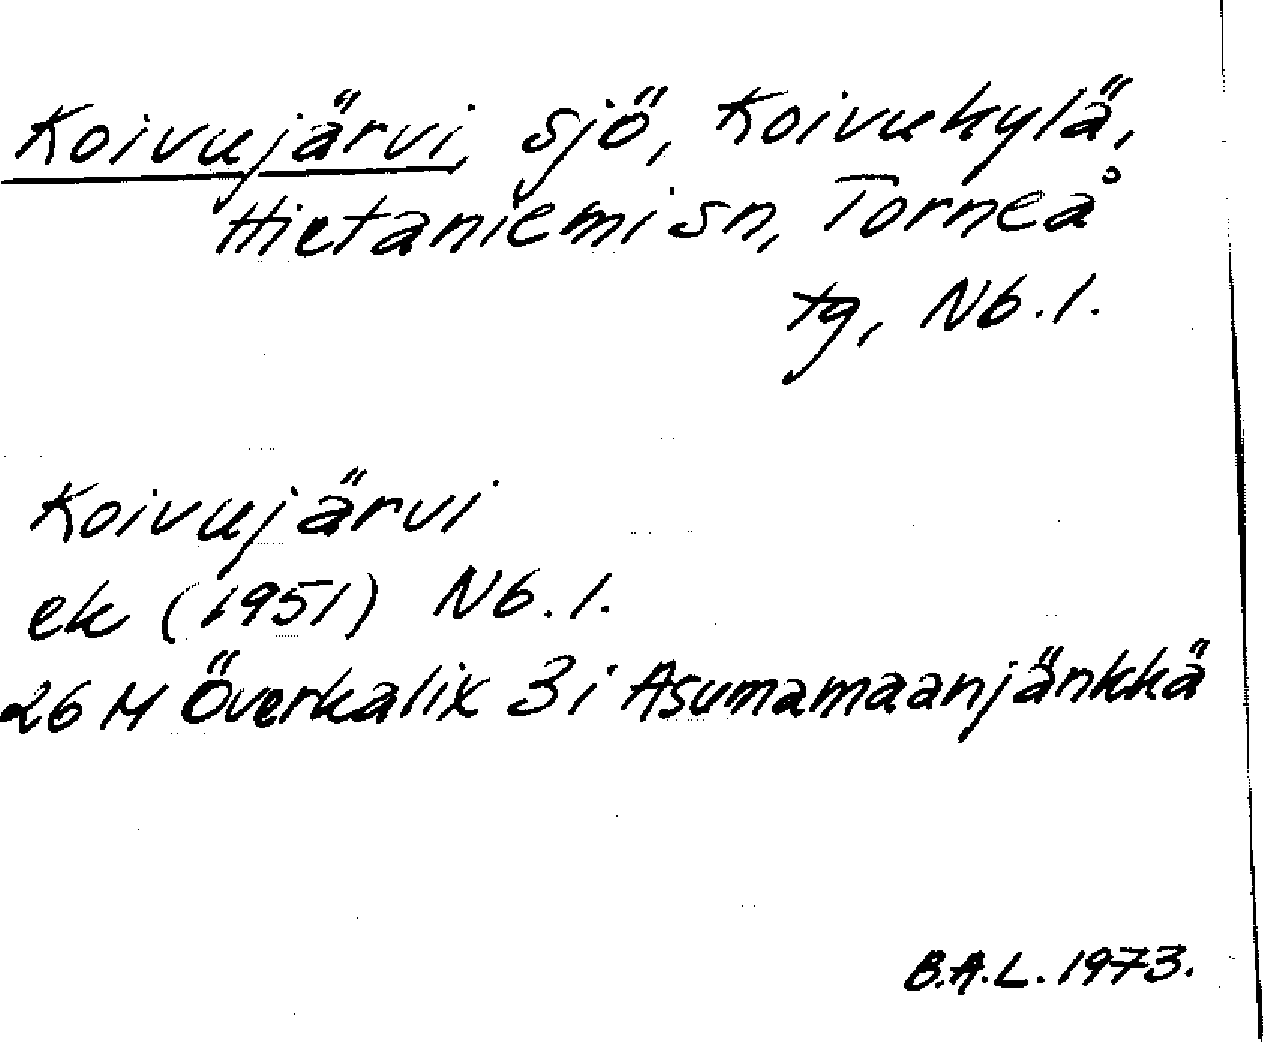 Koivujärvi, sjö, Koivukylä,
Hietaniemi sn, Torneå
tg, Nb.l.
Koivujärvi
ek (1951) Nb.l.
26 M Överkalix 3 i Asumamaanjänkkä
B.A.L. 1973.